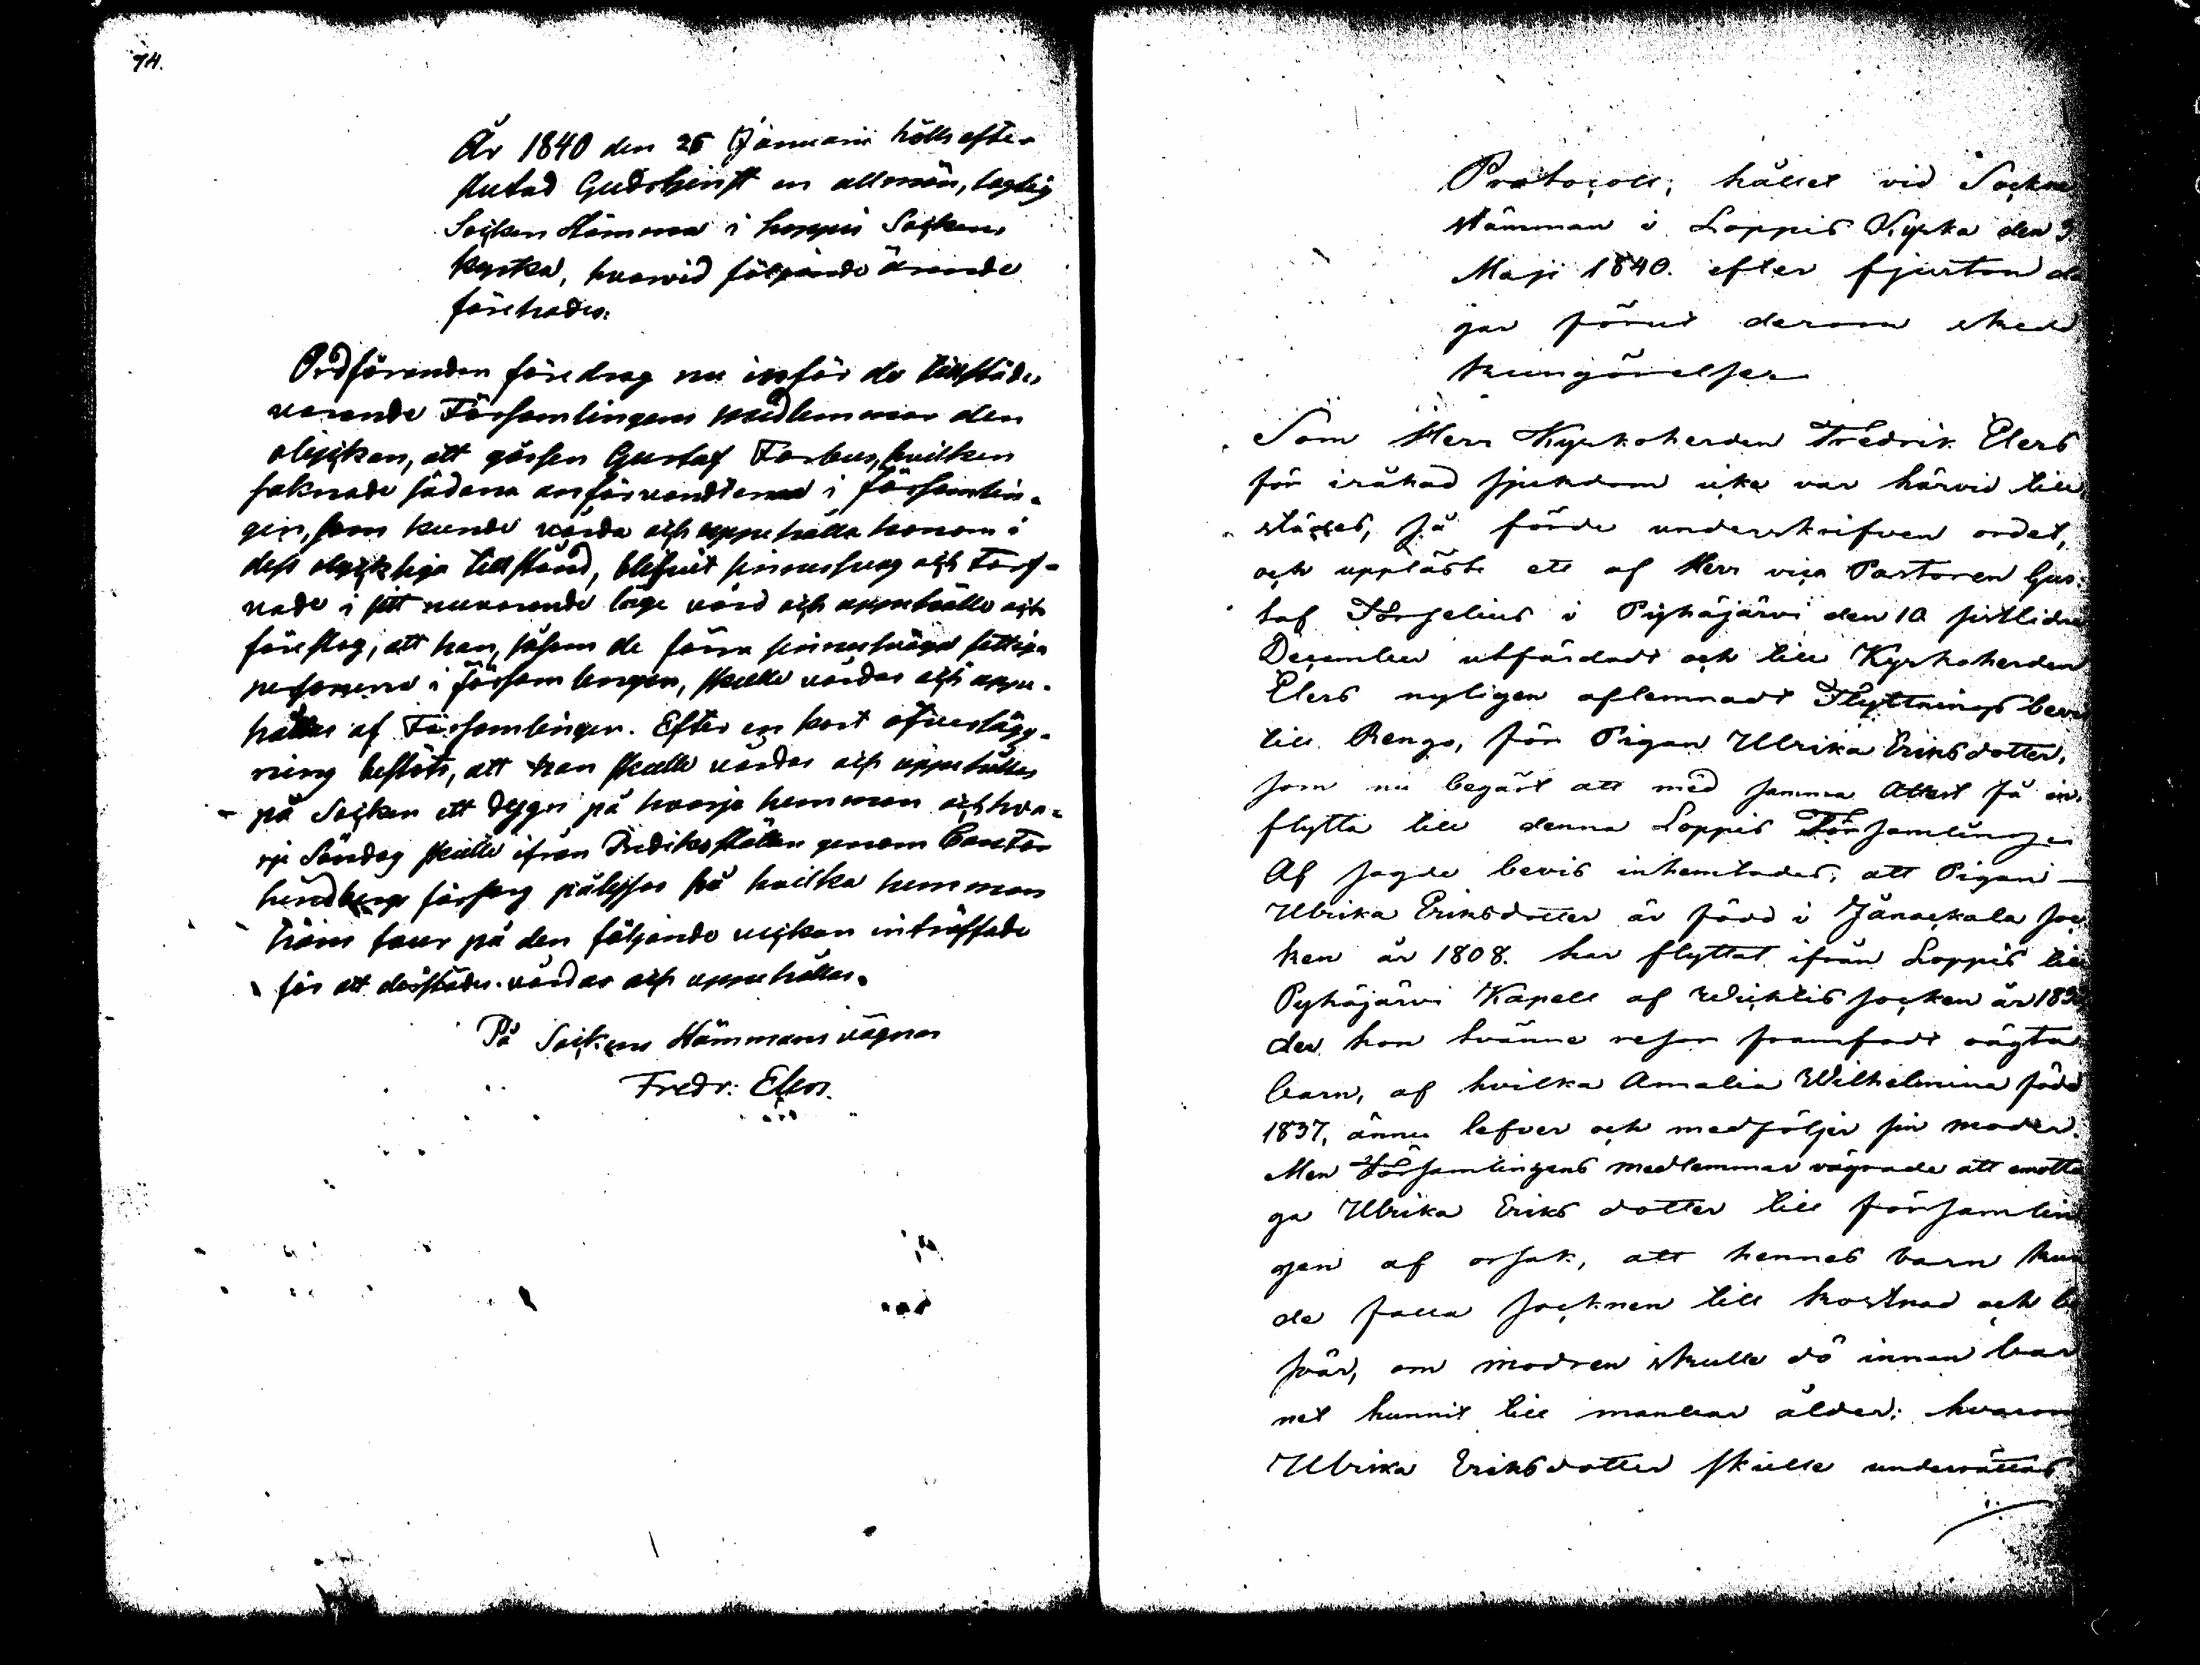 94.
År 1840 den 26 Januarii hölls efter
slutad Gudstjenst en allmän, laglig
Socken Stämma i Loppis Sockens
kyrka, hvarvid följande ärende
företrades:
Ordföranden föredrog nu inför de tillstädes
varande Församlingens medlemmar den
olyckan, att gossen Gustaf Forbus, hvilken
saknade sådana anförvandterna i församlin-
gen, som kunde vårda och uppehålla honom i
dess olyckliga tillstånd, blifvit sinnessvag och torf-
vade i sitt nuvarande läge vård och uppehälle och
föreslog, att han, såsom de förra sinnessvaga fattiga
personerna i församlingen, skulle vårdas och uppe-
hållas af Församlingen. Efter en kort öfverlägg-
ning beslöts, att han skulle vårdas och uppehållas
på Socken ett dygn på hvarje hemman och hva-
rje Söndag skulle ifrån Predikostolen genom Cantor
Lindbergs försorg pålysas på hvilka hemman
hans tour på den följande veckan inträffade
för att derstädes vårdas och uppehållas.
På Sockens Stämmans vägnar
Fredr: Elers.
Protocoll, hållet vid Sockne
stämman i Loppis Kyrka den 3
Maji 1840. efter fjurton da
gar förut derom sked
kungörelse
Som Herr Kyrkoherden Fredrik Elers
för iråkad sjukdom icke var härvid till
städes, så förde underskrifven ordet,
och uppläste ett af Herr vice Pastoren Gus-
taf Forselius i Pyhäjärvi den 10 sistlidne
December utfärdadt och till Kyrkoherden
Elers nyligen aflemnadt Flyttnings bevis
till Rengo, för Pigan Ulrika Eriksdotter,
som nu begärt att med samma Attest få in-
flytta till denna Loppis Församlingen
Af sagde bevis inhemtades, att Pigan
Ulrika Eriksdotter är född i Jänackala soc
ken år 1808. har flyttat ifrån Loppis till
Pyhäjärvi Kapell af Wichtis socken år 183
der hon tvänne resor framfödt oägta
barn, af hvilka Amalia Wilhelmina född
1837, ännu lefver och medföljer sin moder.
Men Församlingens medlemmar vägrade att emotta
ga Ulrika Eriks dotter till församlin
gen af orsak, att hennes barn kun
de falla socknen till kostnad och be
svär, om modren skulle dö innan bar
net hunnit till manbar ålder; hvarom
Ulrika Eriksdotter skulle underrättas.